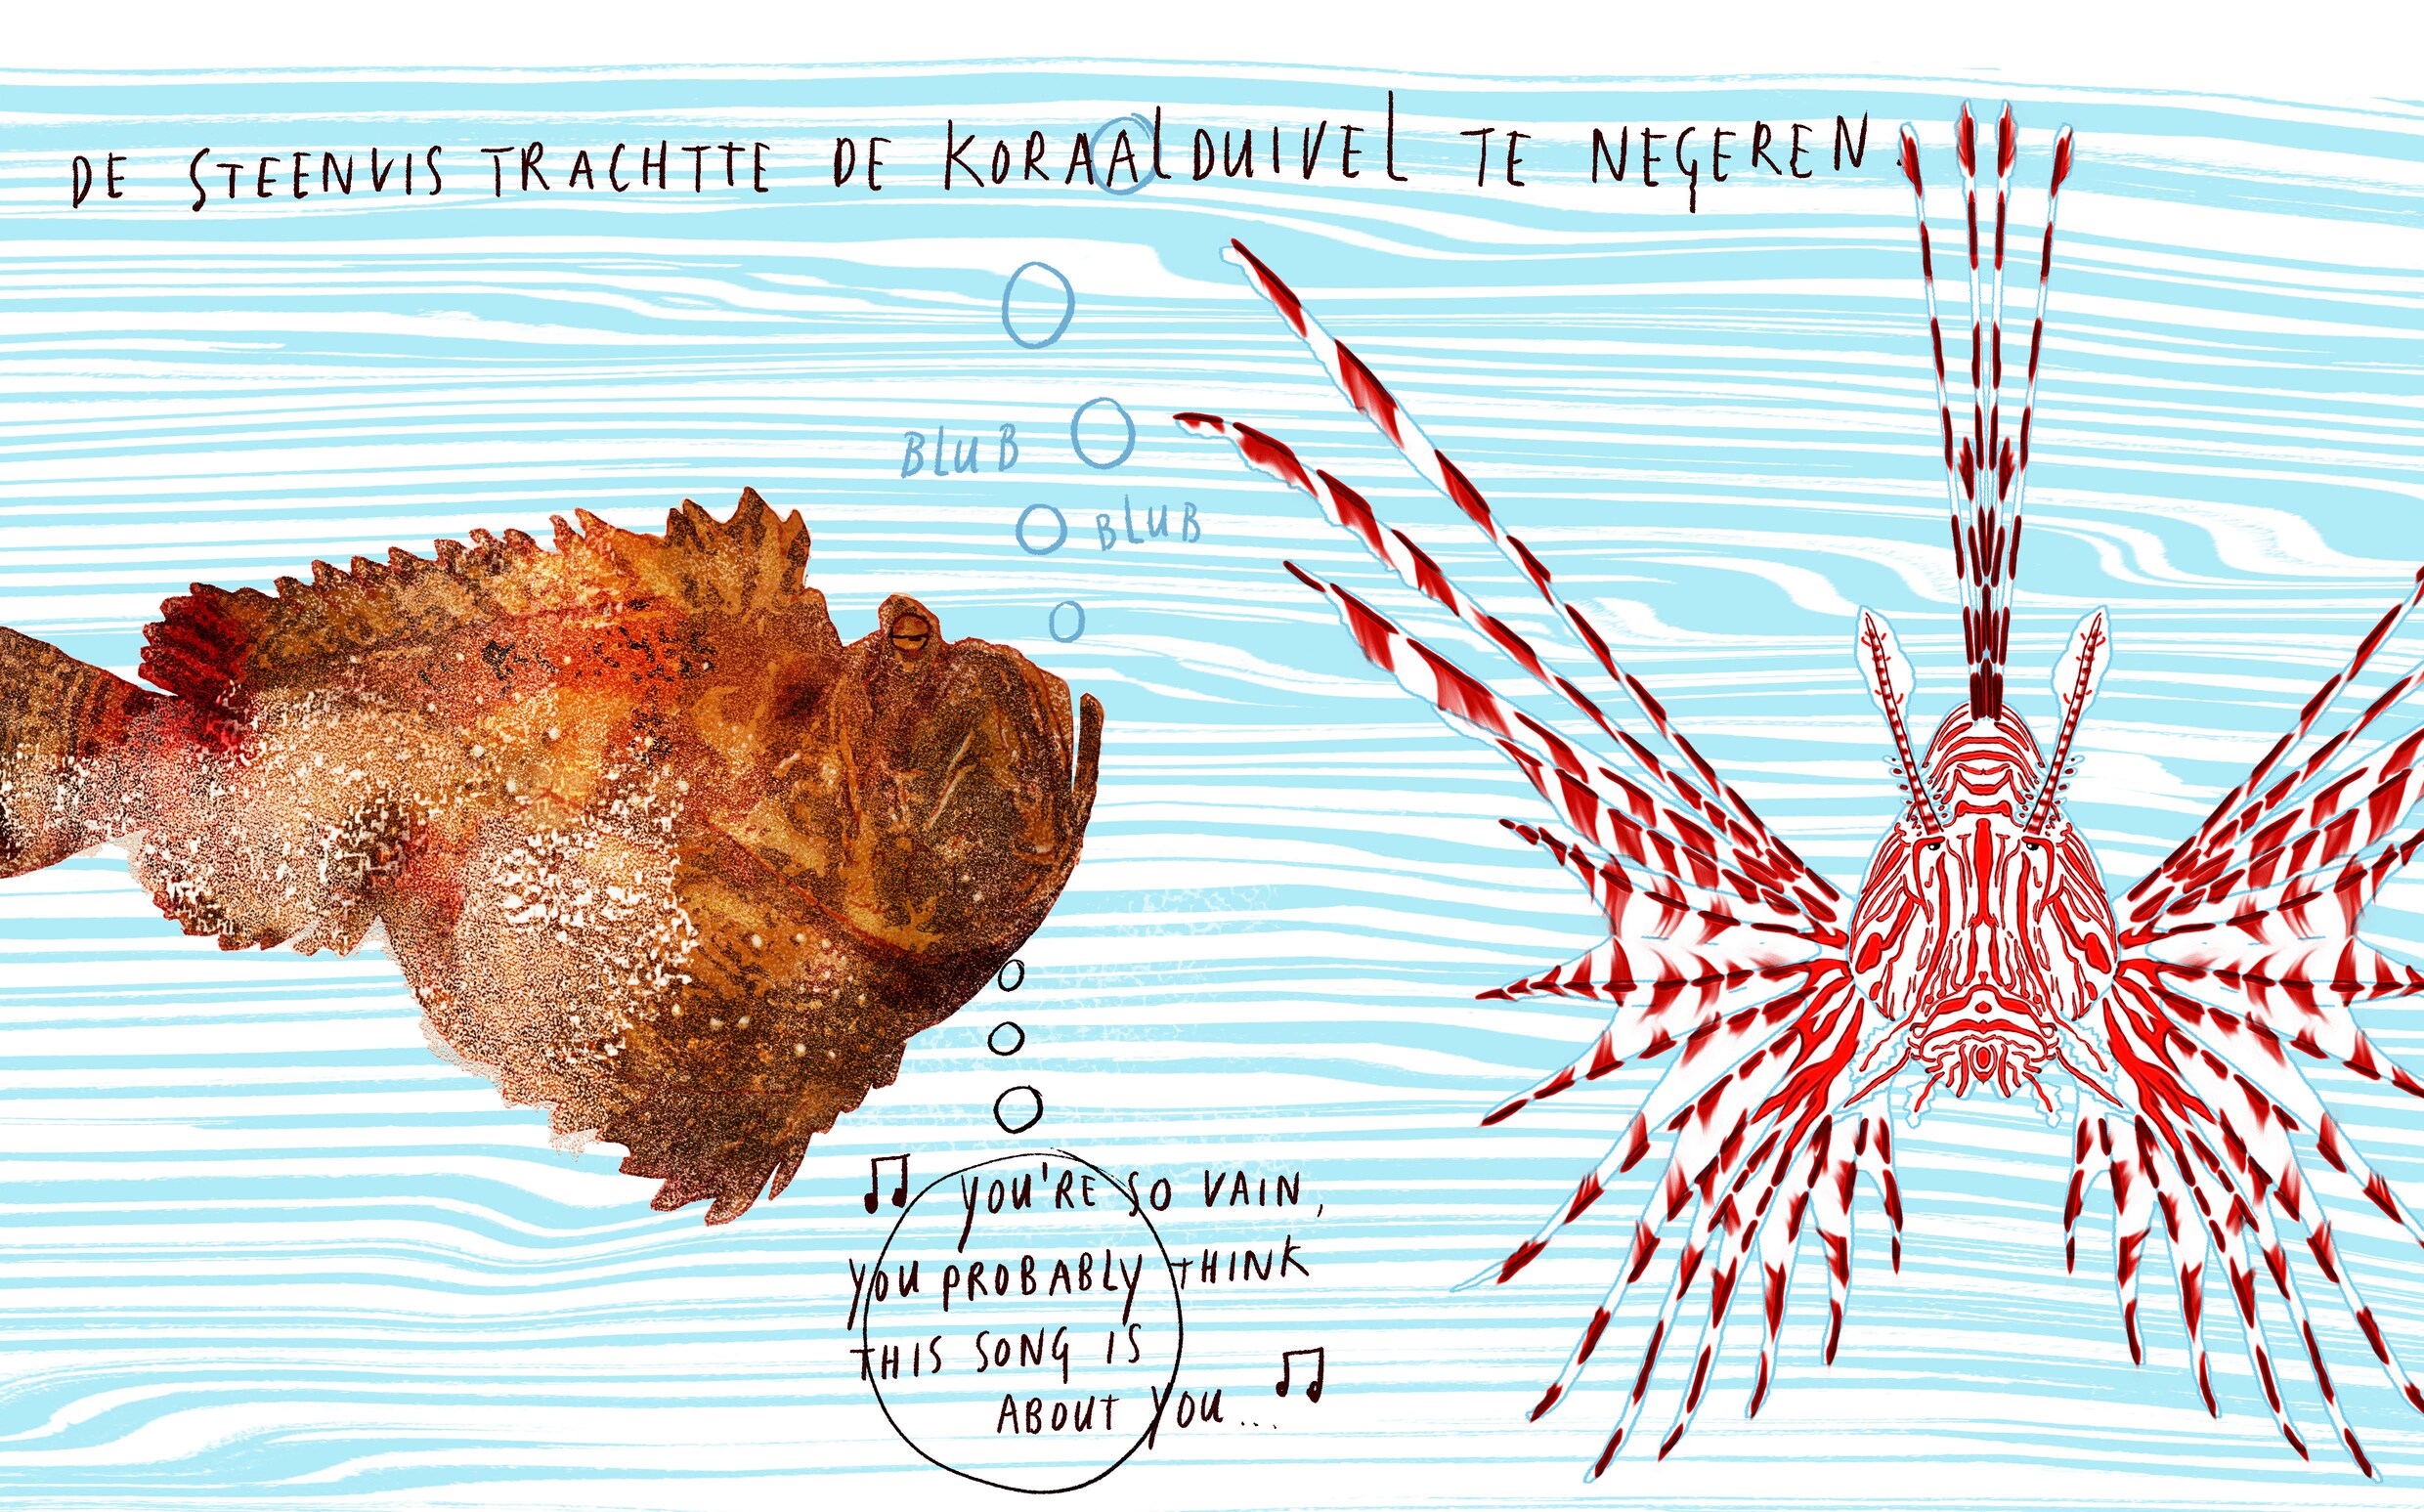 DE STEENVIS TRACHTTE DE KORAALDUIVEL TE NEGEREN.
BLUB
BLUB
♫ YOU'RE SO VAIN,
YOU PROBABLY THINK
THIS SONG IS
ABOUT YOU... ♫